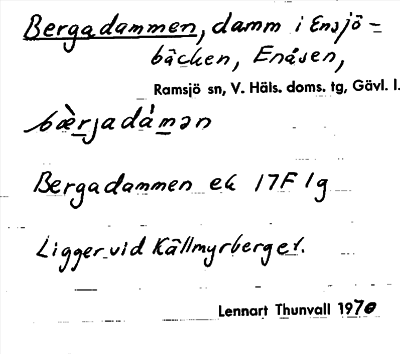 Bergadammen, damm i Ensjö-
bäcken, Enåsen,
Ramsjö sn, V. Häls. doms. tg, Gävl. l.
bæ̀rjadàmən
Bergadammen ek 17F 1g
Ligger vid Källmyrberget.
Lennart Thunvall 1970